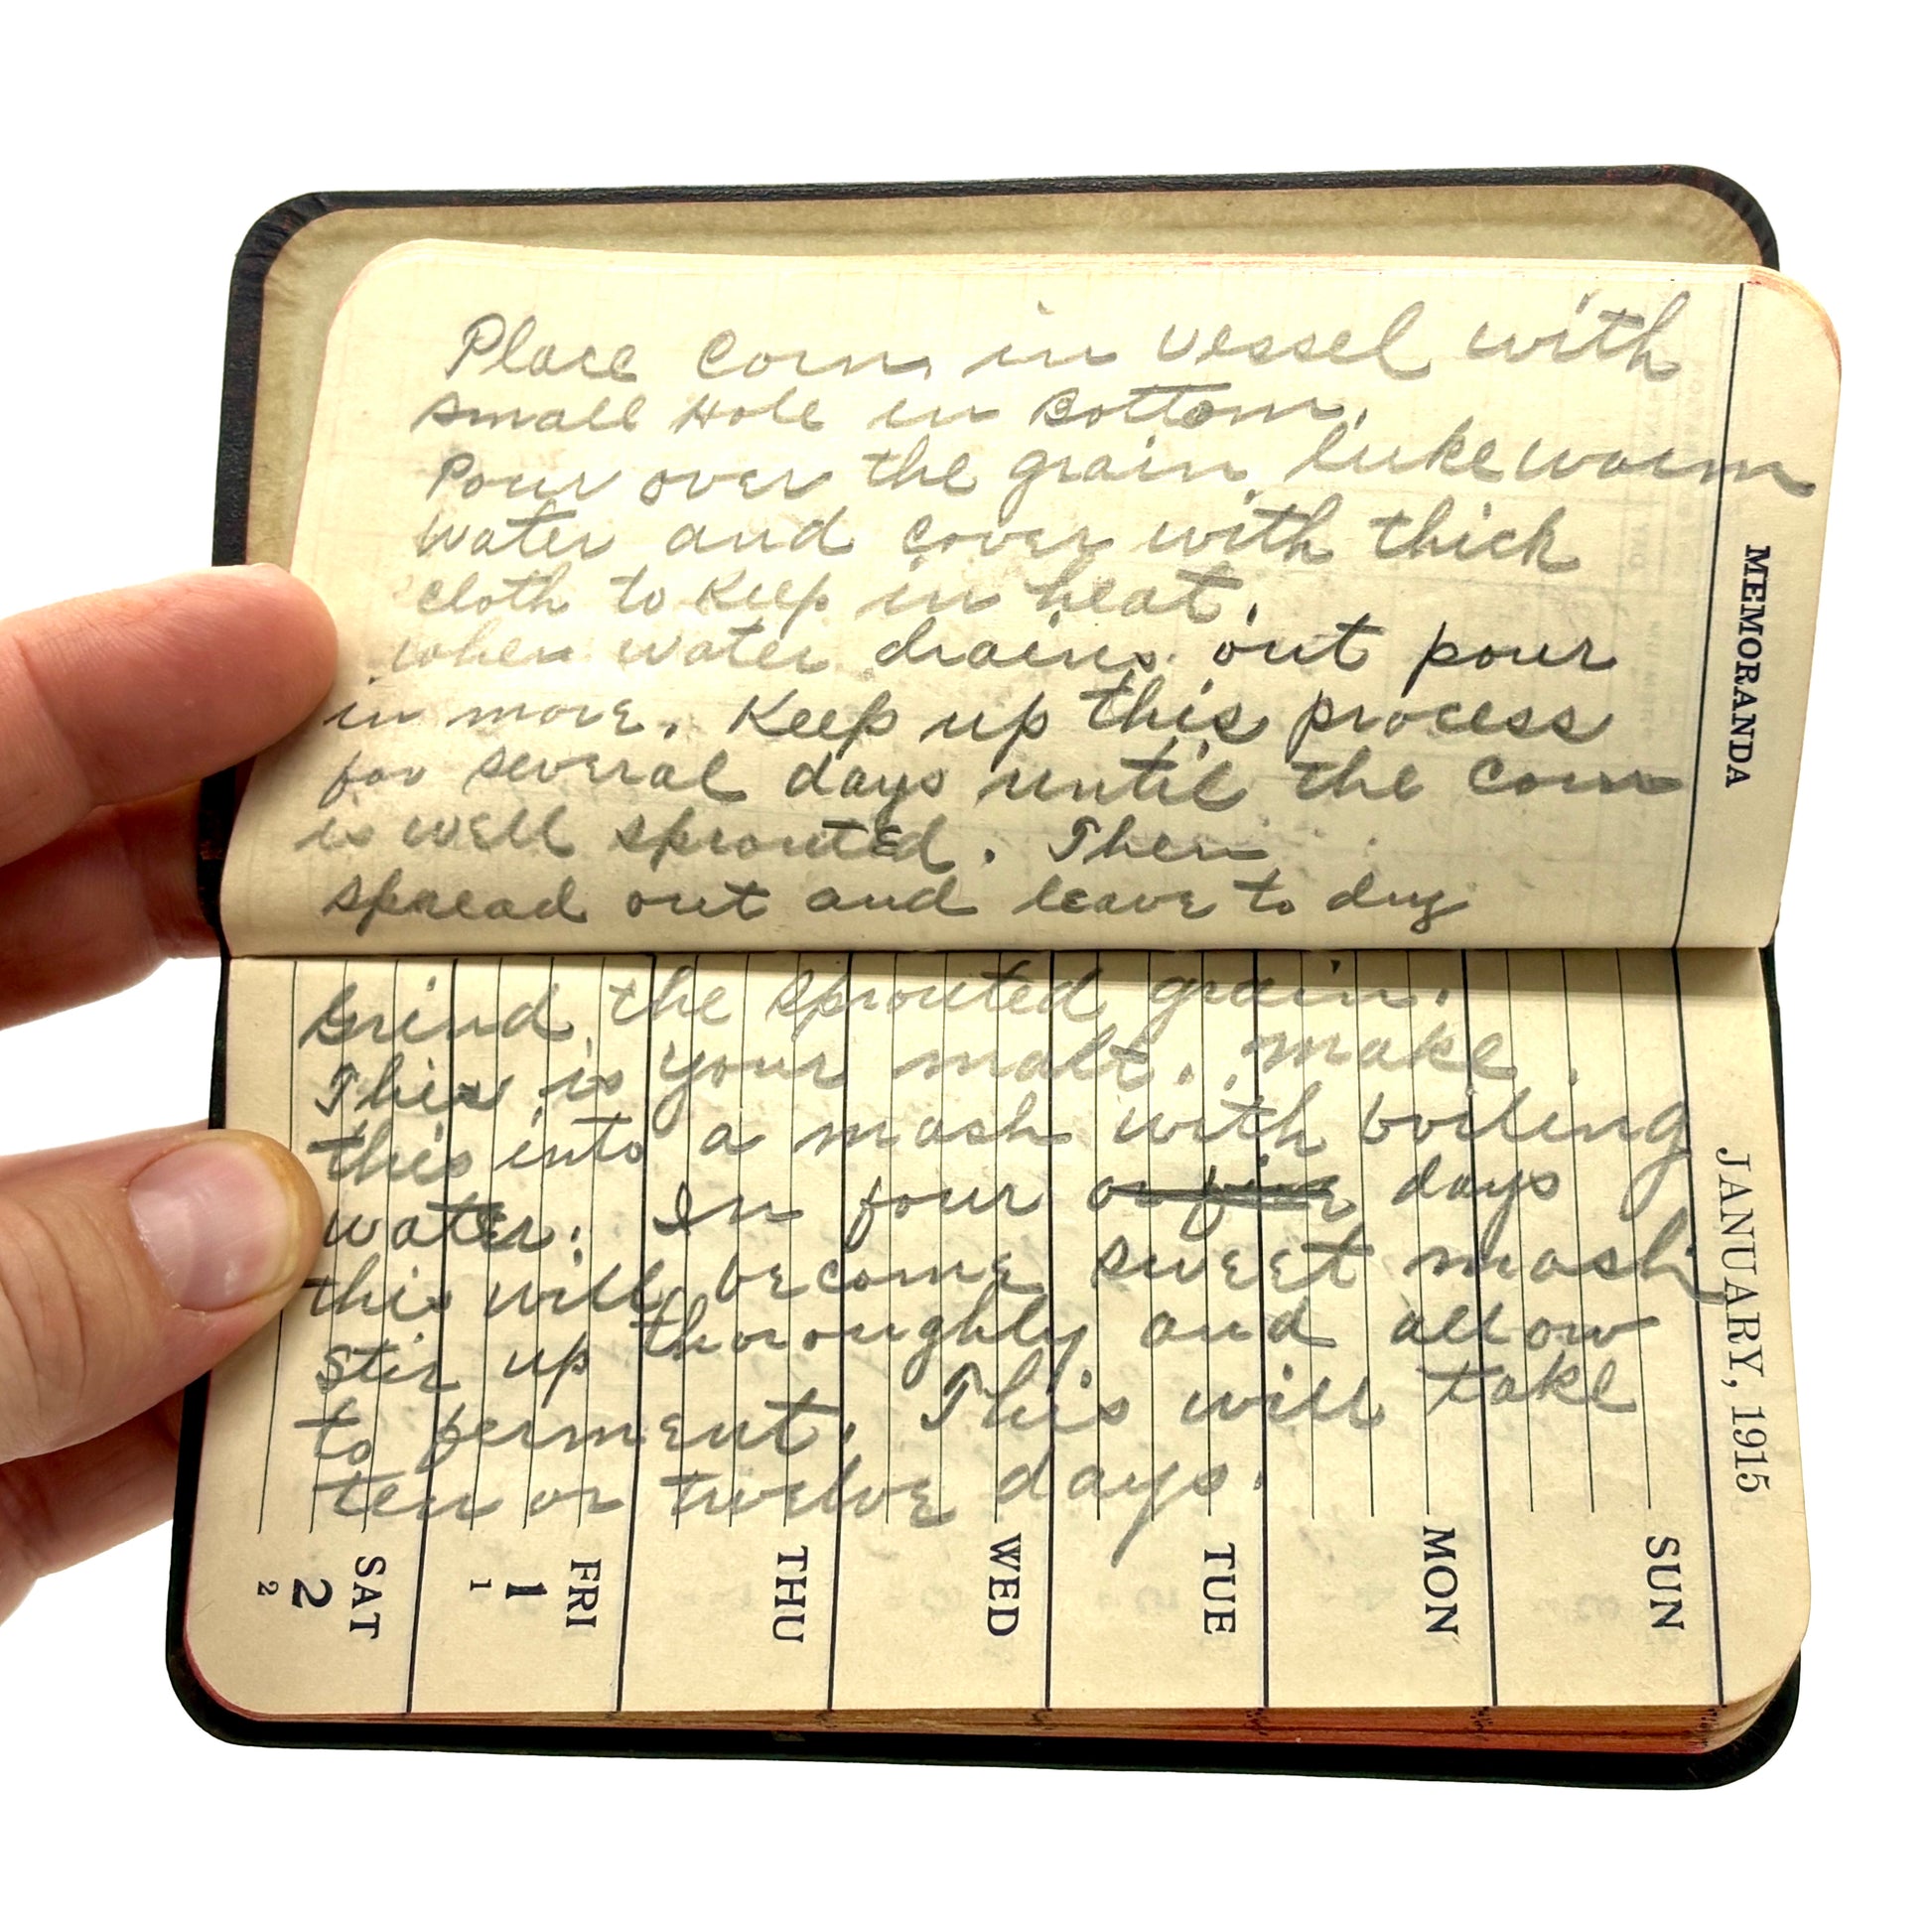 Place Corn in vessel with
small Hole in Bottom.
Pour over the grain lukewarm
water and cover with thick
cloth to Keep in heat.
when water drains out pour
in more. Keep up this process
for several days until the corn
is well sprouted. Then
spread out and leave to dry
MEMORANDA
Grind the sprouted grain.
This is your malt. make
this into a mash with boiling
water. In four or five days
this will become sweet mash
Stir up thoroughly and allow
to ferment. This will take
ten or twelve days.
JANUARY, 1915
SUN
MON
TUE
WED
THU
FRI
1
1
SAT
2
2